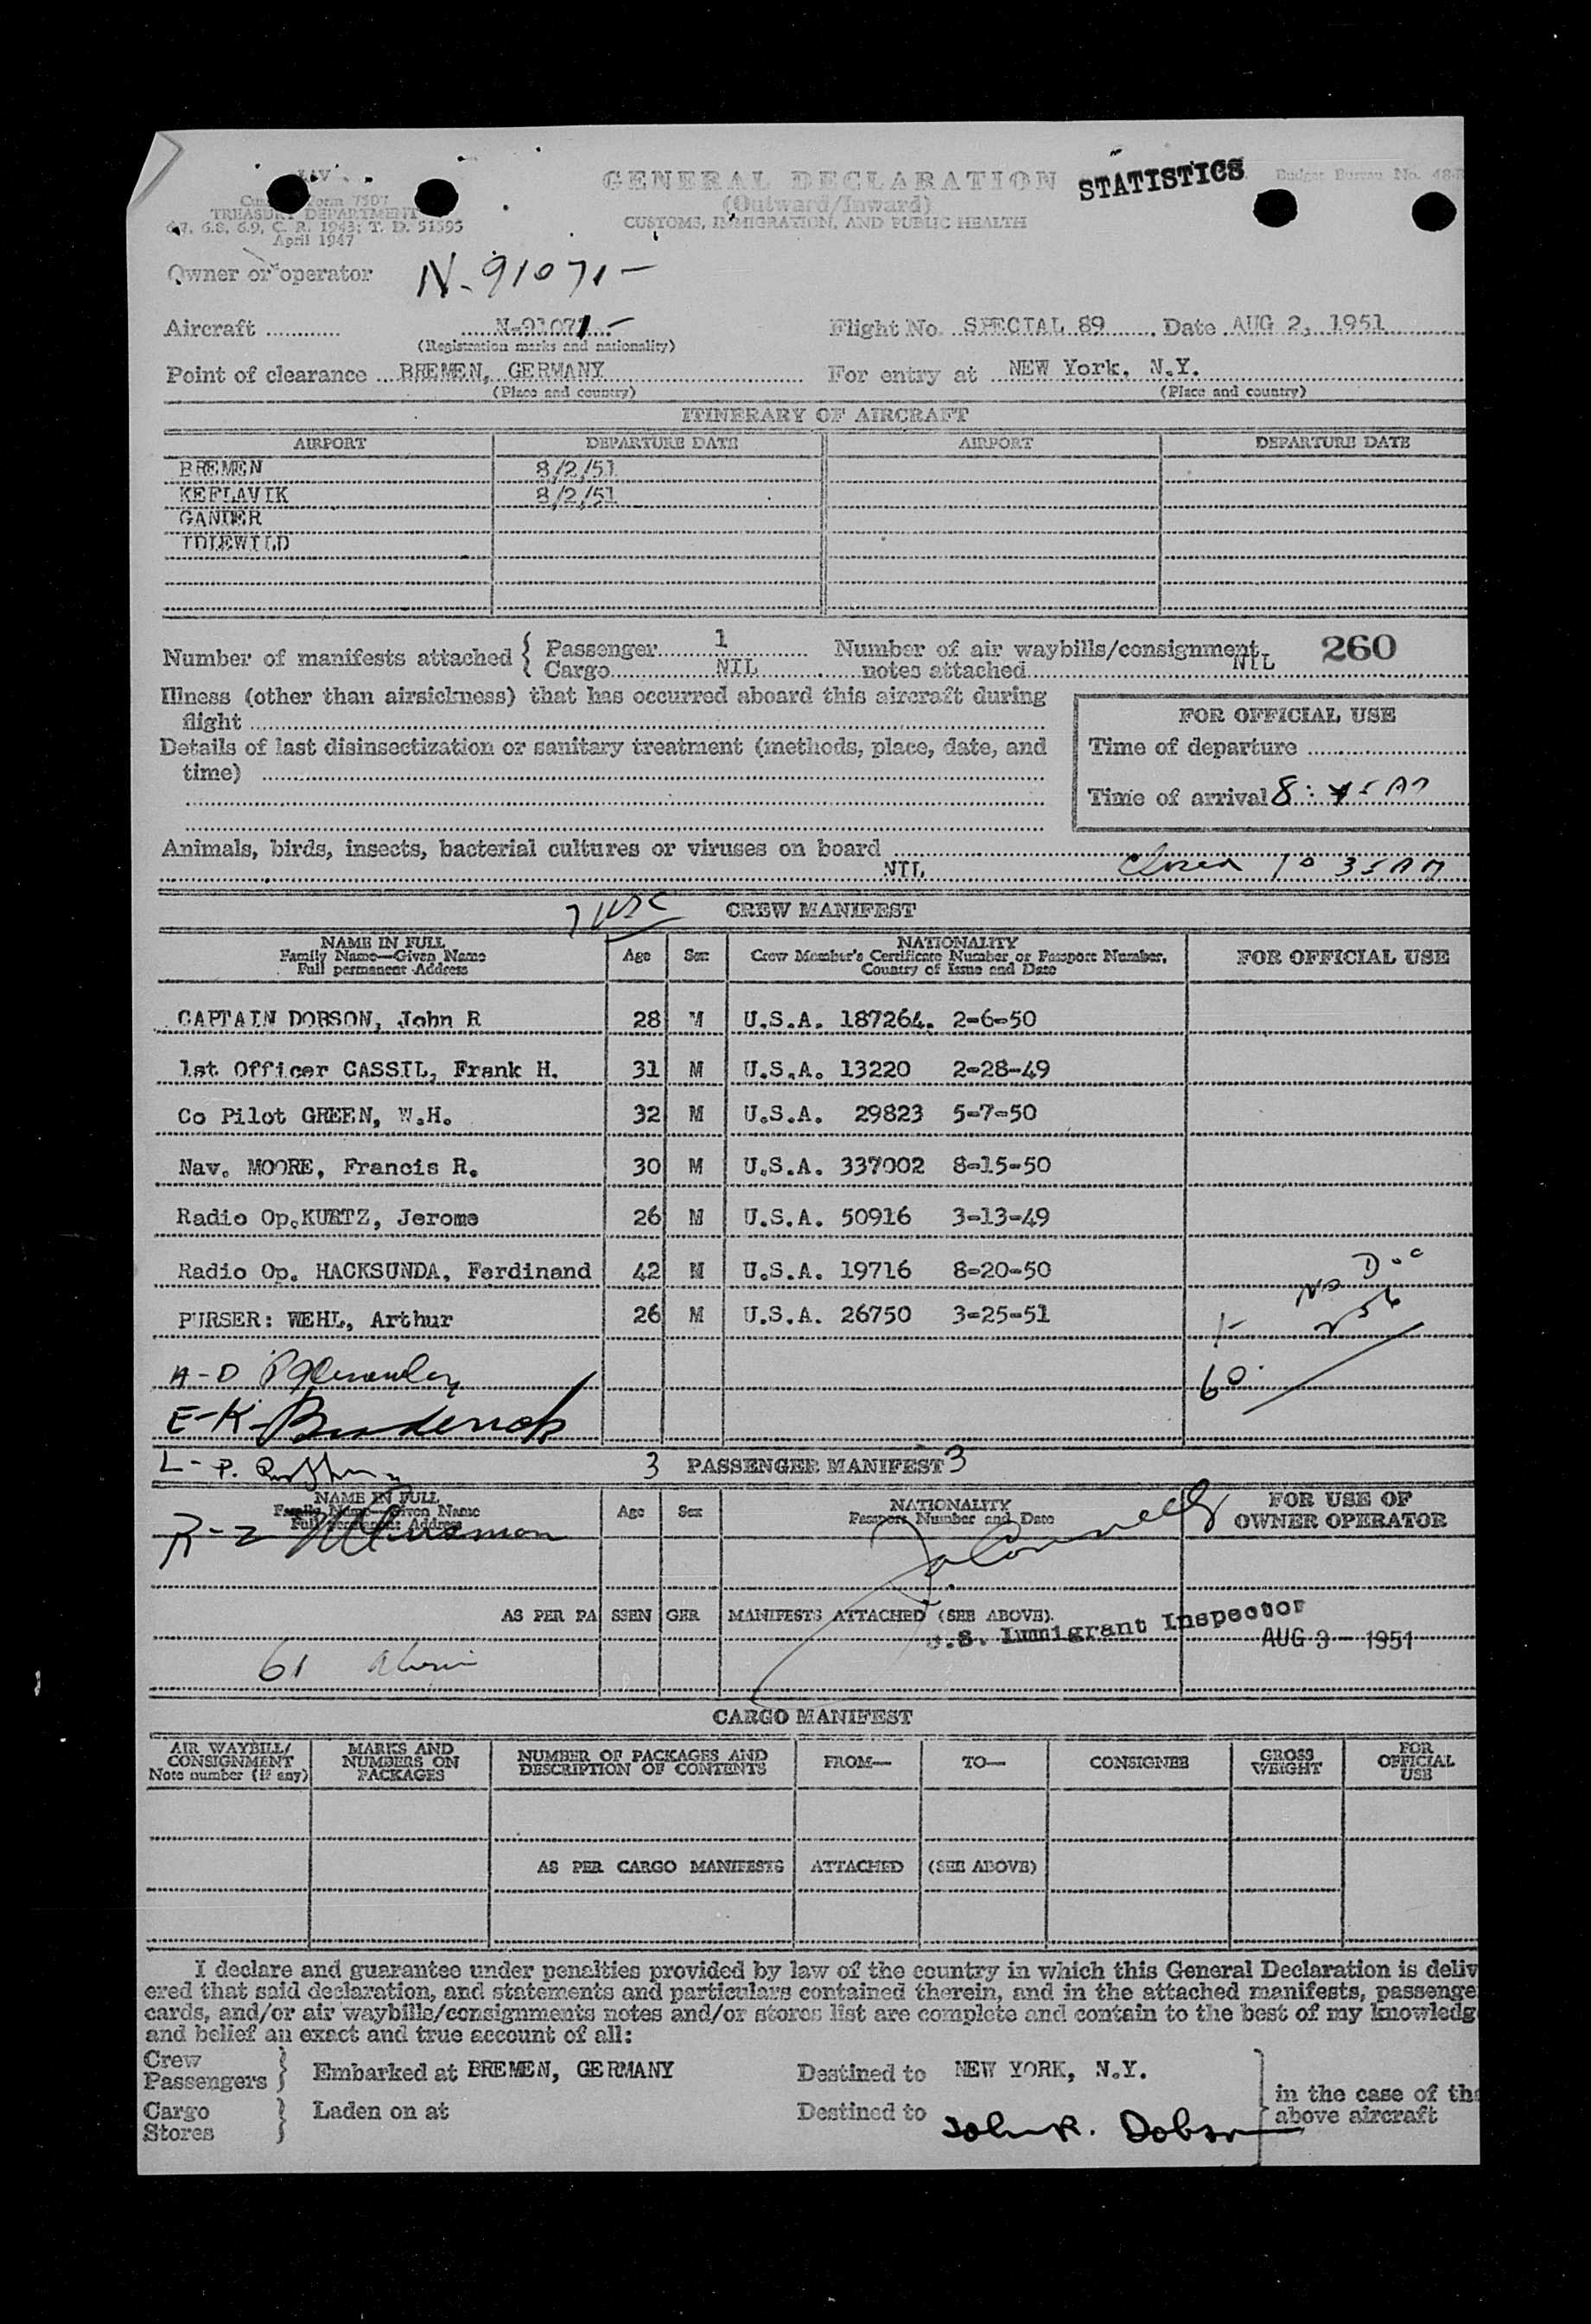 GENERAL DECLARATION
(Outward/Inward)
CUSTOMS, IMMIGRATION, AND PUBLIC HEALTH
STATISTICS
Budget Bureau No.
Form 7507
TREASURY DEPARTMENT
6.8, 6.9, C. R. 1943; T. D. 51595
April 1947
Owner or operator N-91071-
Aircraft N-91071-
(Registration marks and nationality)
Flight No. SPECIAL 89 Date AUG 2, 1951
Point of clearance BREMEN, GERMANY For entry at NEW York, N.Y.
(Place and country) (Place and country)
ITINERARY OF AIRCRAFT
AIRPORT DEPARTURE DATE AIRPORT DEPARTURE DATE
BREMEN 8/2/51
KEFLAVIK 8/2/51
GANDER
IDLEWILD
Number of manifests attached { Passenger 1 Number of air waybills/consignment 260
Cargo NIL notes attached NIL
Illness (other than airsickness) that has occurred aboard this aircraft during
flight
FOR OFFICIAL USE
Details of last disinsectization or sanitary treatment (methods, place, date, and
time)
Time of departure
Time of arrival 8:45 AM
Animals, birds, insects, bacterial cultures or viruses on board
NIL 10 35 AM
CREW MANIFEST
NAME IN FULL
Family Name—Given Name
Full permanent Address
Age Sex
NATIONALITY
Crew Member's Certificate Number or Passport Number,
Country of Issue and Date
FOR OFFICIAL USE
CAPTAIN DOBSON, John R 28 M U.S.A. 187264. 2-6-50
1st Officer CASSIL, Frank H. 31 M U.S.A. 13220 2-28-49
Co Pilot GREEN, W.H. 32 M U.S.A. 29823 5-7-50
Nav. MOORE, Francis R. 30 M U.S.A. 337002 8-15-50
Radio Op.KURTZ, Jerome 26 M U.S.A. 50916 3-13-49
Radio Op. HACKSUNDA, Ferdinand 42 M U.S.A. 19716 8-20-50
PURSER: WEHL, Arthur 26 M U.S.A. 26750 3-25-51
A-D
60
E-K- Broderick
L-P.
3 PASSENGER MANIFEST 3
NAME IN FULL
Family Name—Given Name
Full permanent Address
Age Sex
NATIONALITY
Passport Number and Date
FOR USE OF
OWNER OPERATOR
R-Z
AS PER PASSENGER MANIFESTS ATTACHED (SEE ABOVE).
U.S. Immigrant Inspector
AUG 3 - 1951
61
CARGO MANIFEST
AIR WAYBILL/
CONSIGNMENT
Note number (if any)
MARKS AND
NUMBERS ON
PACKAGES
NUMBER OF PACKAGES AND
DESCRIPTION OF CONTENTS
FROM— TO— CONSIGNEE
GROSS
WEIGHT
FOR
OFFICIAL
USE
AS PER CARGO MANIFESTS ATTACHED (SEE ABOVE)
I declare and guarantee under penalties provided by law of the country in which this General Declaration is deliv
ered that said declaration, and statements and particulars contained therein, and in the attached manifests, passenge
cards, and/or air waybills/consignments notes and/or stores list are complete and contain to the best of my knowledg
and belief an exact and true account of all:
Crew
Passengers } Embarked at BREMEN, GERMANY Destined to NEW YORK, N.Y.
in the case of the
above aircraft
Cargo
Stores } Laden on at Destined to
John R. Dobson